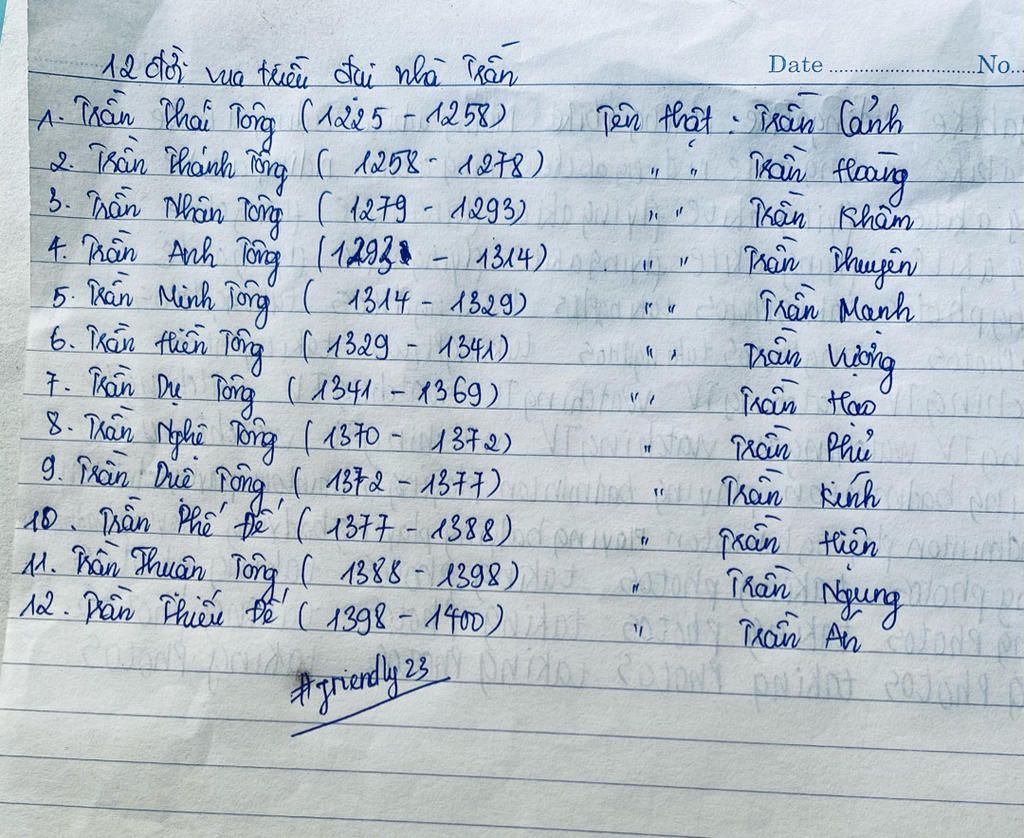 12 đời vua triều đại nhà Trần
Date ........................ No...
1. Trần Thái Tông (1225 - 1258) Tên thật : Trần Cảnh
2. Trần Thánh Tông ( 1258 - 1278) " " Trần Hoàng
3. Trần Nhân Tông ( 1279 - 1293) " " Trần Khâm
4. Trần Anh Tông (1293 - 1314) " " Trần Thuyên
5. Trần Minh Tông ( 1314 - 1329) " " Trần Mạnh
6. Trần Hiến Tông ( 1329 - 1341) " " Trần Vượng
7. Trần Dụ Tông ( 1341 - 1369) " " Trần Hạo
8. Trần Nghệ Tông ( 1370 - 1372) " Trần Phủ
9. Trần Duệ Tông ( 1372 - 1377) " Trần Kính
10. Trần Phế Đế ( 1377 - 1388) " Trần Hiện
11. Trần Thuận Tông ( 1388 - 1398) " Trần Ngung
12. Trần Thiếu Đế ( 1398 - 1400) " Trần Án
#friendly23